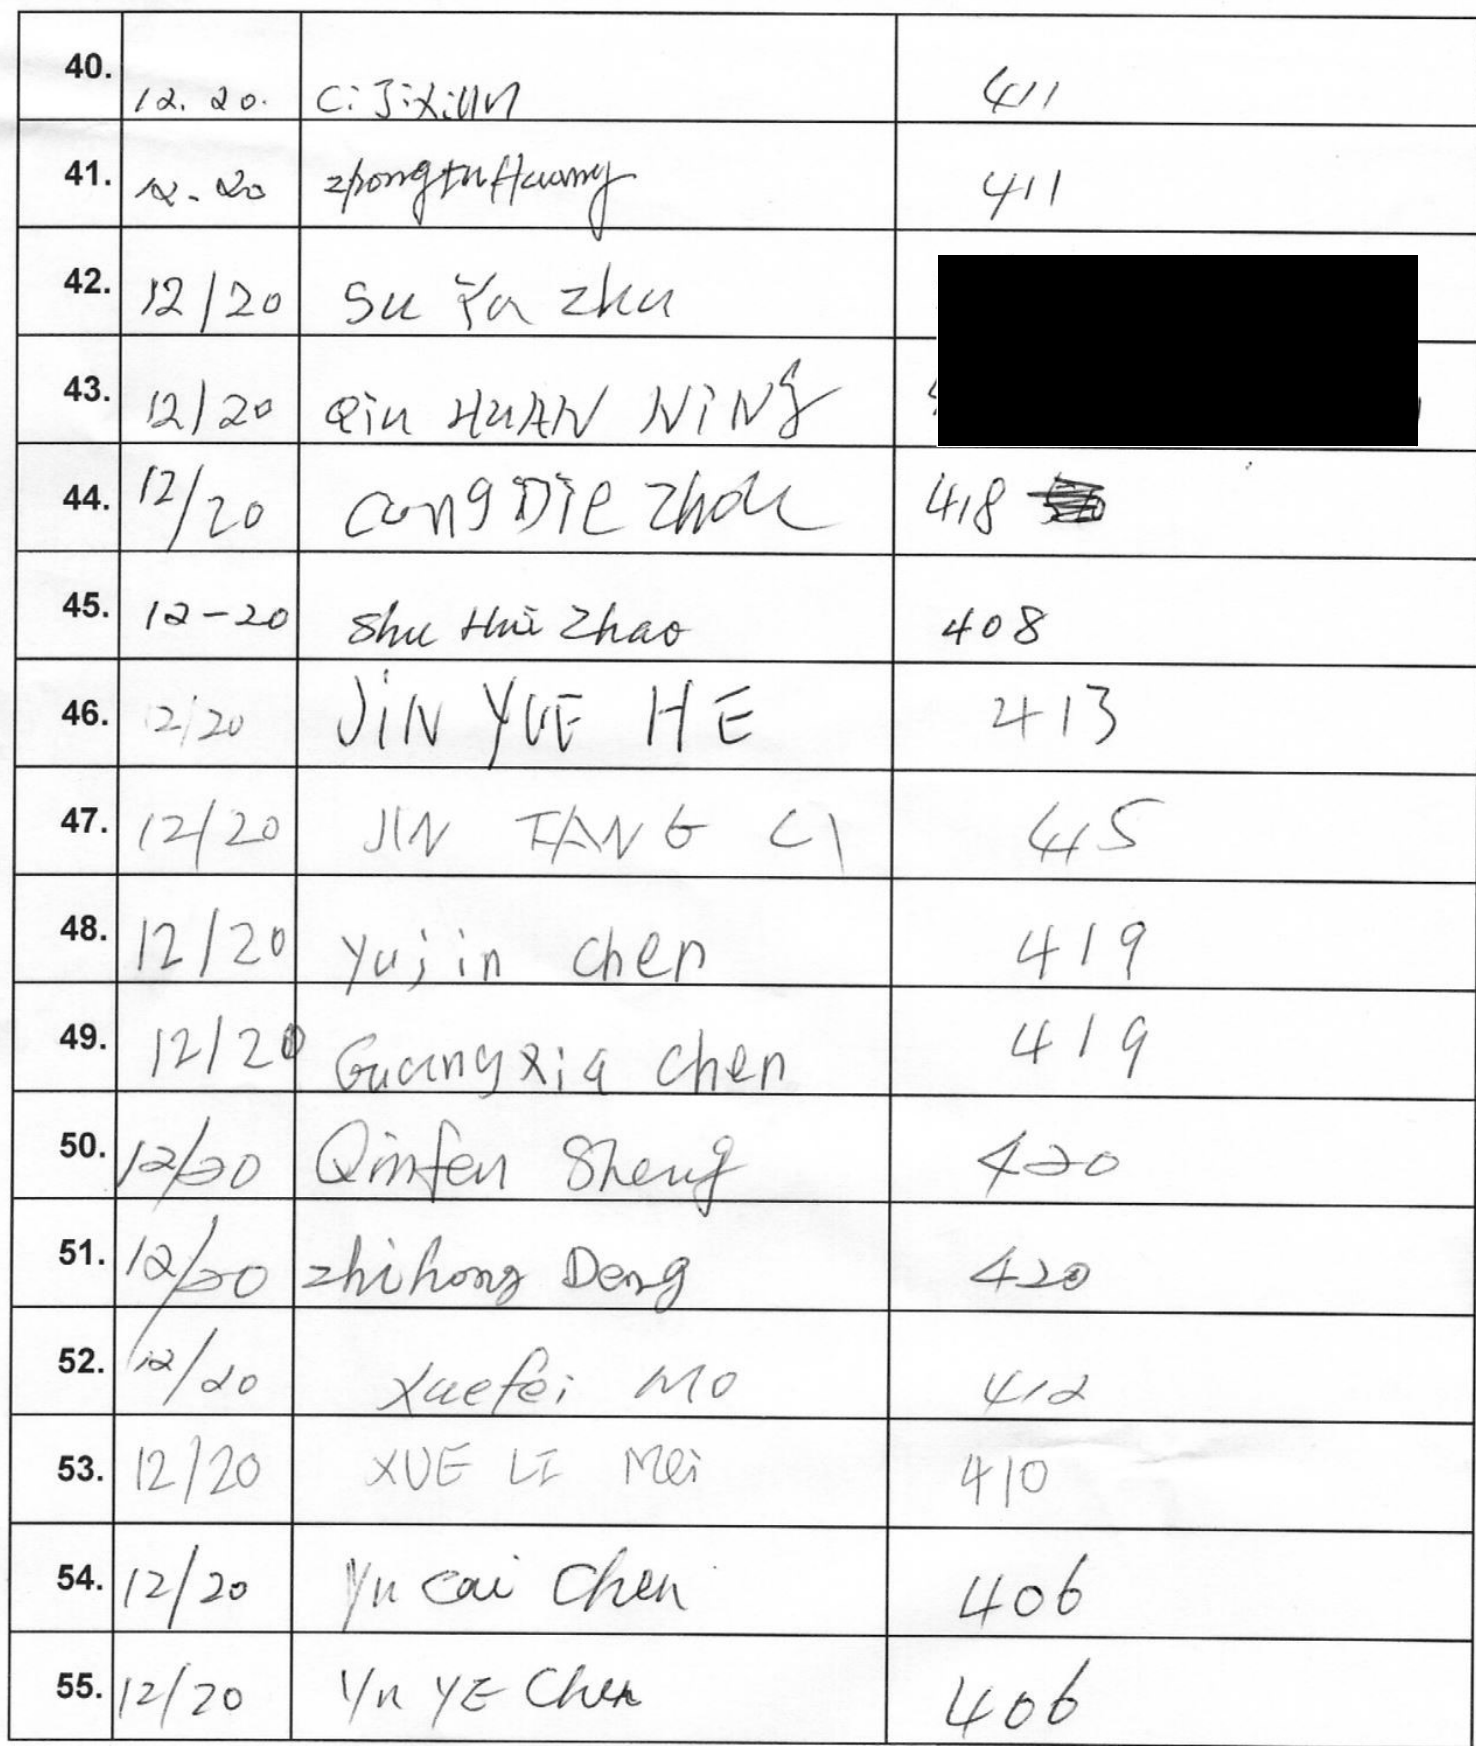 40. 12. 20. Ci Jixiun 411
41. 12-20 zhongtu Huang 411
42. 12/20 Su Ya zhu
43. 12/20 Qiu HUAN NiNg
44. 12/20 Cong Die Zhou 418
45. 12-20 Shu Hui Zhao 408
46. 12/20 JiN YUE HE 413
47. 12/20 JIN TANG CI 415
48. 12/20 Yujin chen 419
49. 12/20 Guangxia chen 419
50. 12/20 Qinfen Sheng 420
51. 12/20 zhihong Deng 420
52. 12/20 Xuefei Mo 412
53. 12/20 XUE LI Mei 410
54. 12/20 Yu Cai Chen 406
55. 12/20 Yu YE Chen 406